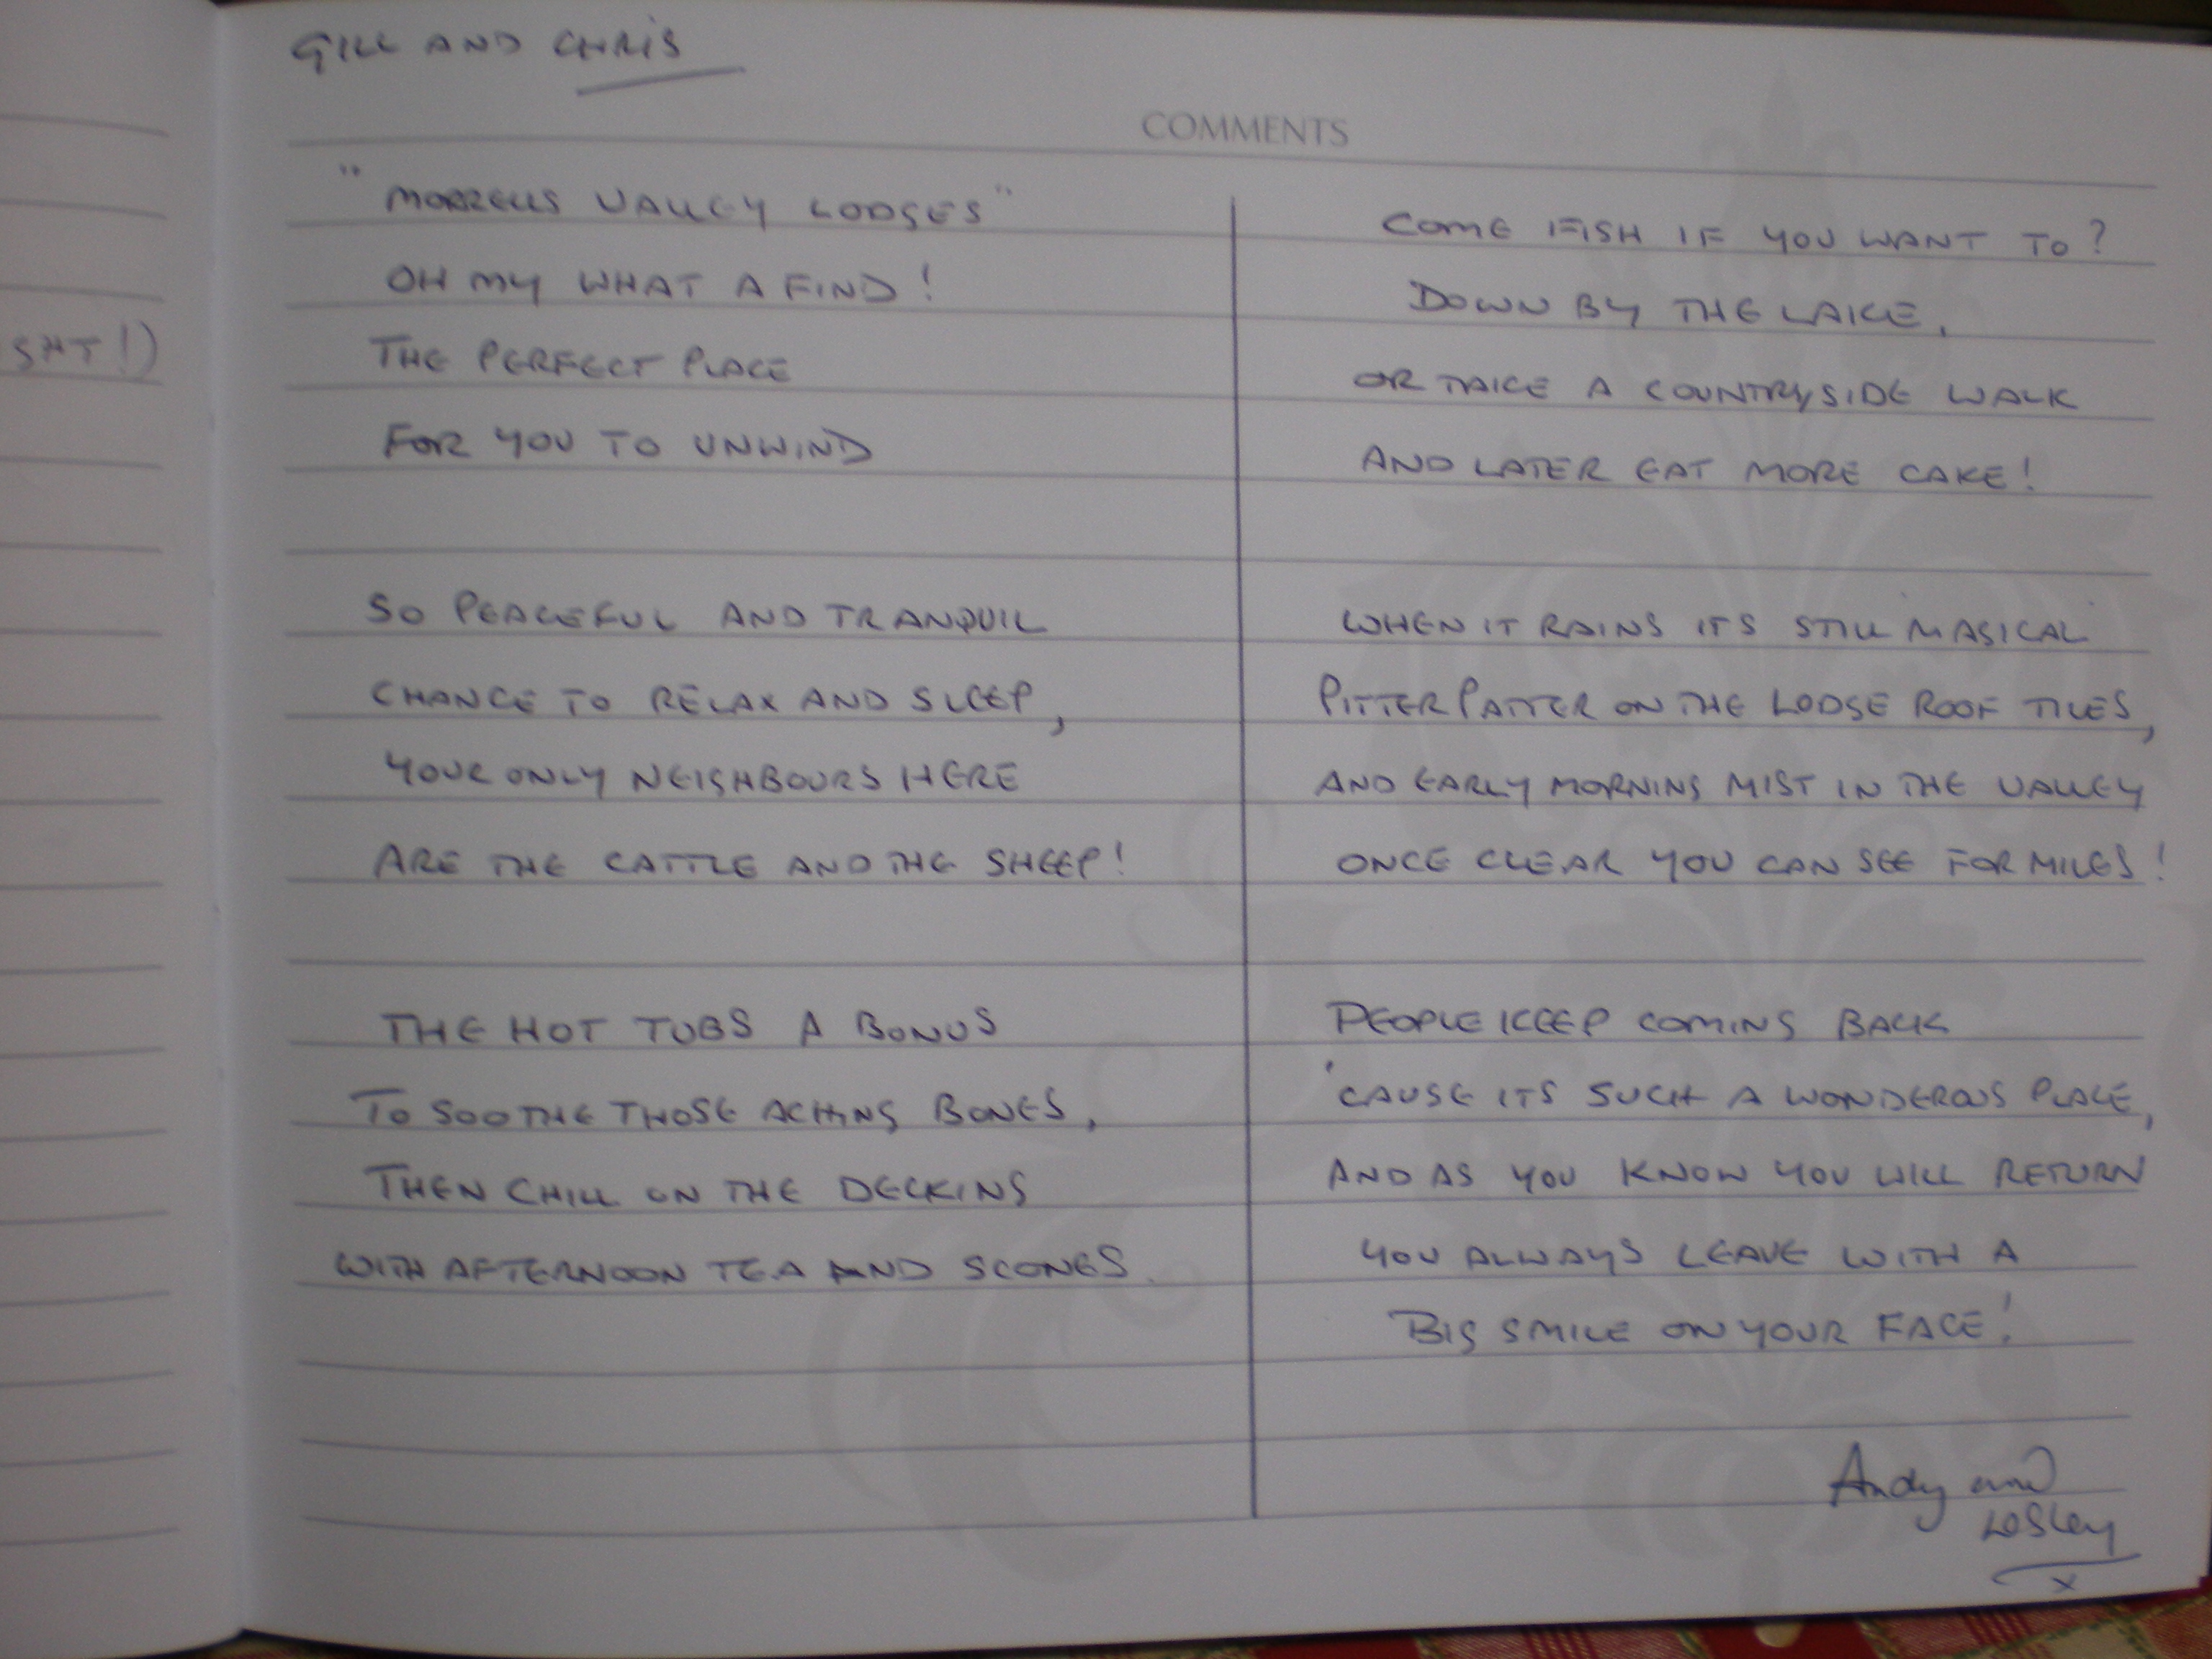 GILL AND CHRIS
COMMENTS
"MORRELLS VALLEY LODGES"
OH MY WHAT A FIND!
THE PERFECT PLACE
FOR YOU TO UNWIND
SO PEACEFUL AND TRANQUIL
CHANCE TO RELAX AND SLEEP,
YOUR ONLY NEIGHBOURS HERE
ARE THE CATTLE AND THE SHEEP!
THE HOT TUBS A BONUS
TO SOOTHE THOSE ACHING BONES,
THEN CHILL ON THE DECKING
WITH AFTERNOON TEA AND SCONES.
COME FISH IF YOU WANT TO?
DOWN BY THE LAKE,
OR TAKE A COUNTRYSIDE WALK
AND LATER EAT MORE CAKE!
WHEN IT RAINS ITS STILL MAGICAL
PITTER PATTER ON THE LODGE ROOF TILES,
AND EARLY MORNING MIST IN THE VALLEY
ONCE CLEAR YOU CAN SEE FOR MILES!
PEOPLE KEEP COMING BACK
'CAUSE ITS SUCH A WONDEROUS PLACE,
AND AS YOU KNOW YOU WILL RETURN
YOU ALWAYS LEAVE WITH A
BIG SMILE ON YOUR FACE!
Andy and
Lesley
x